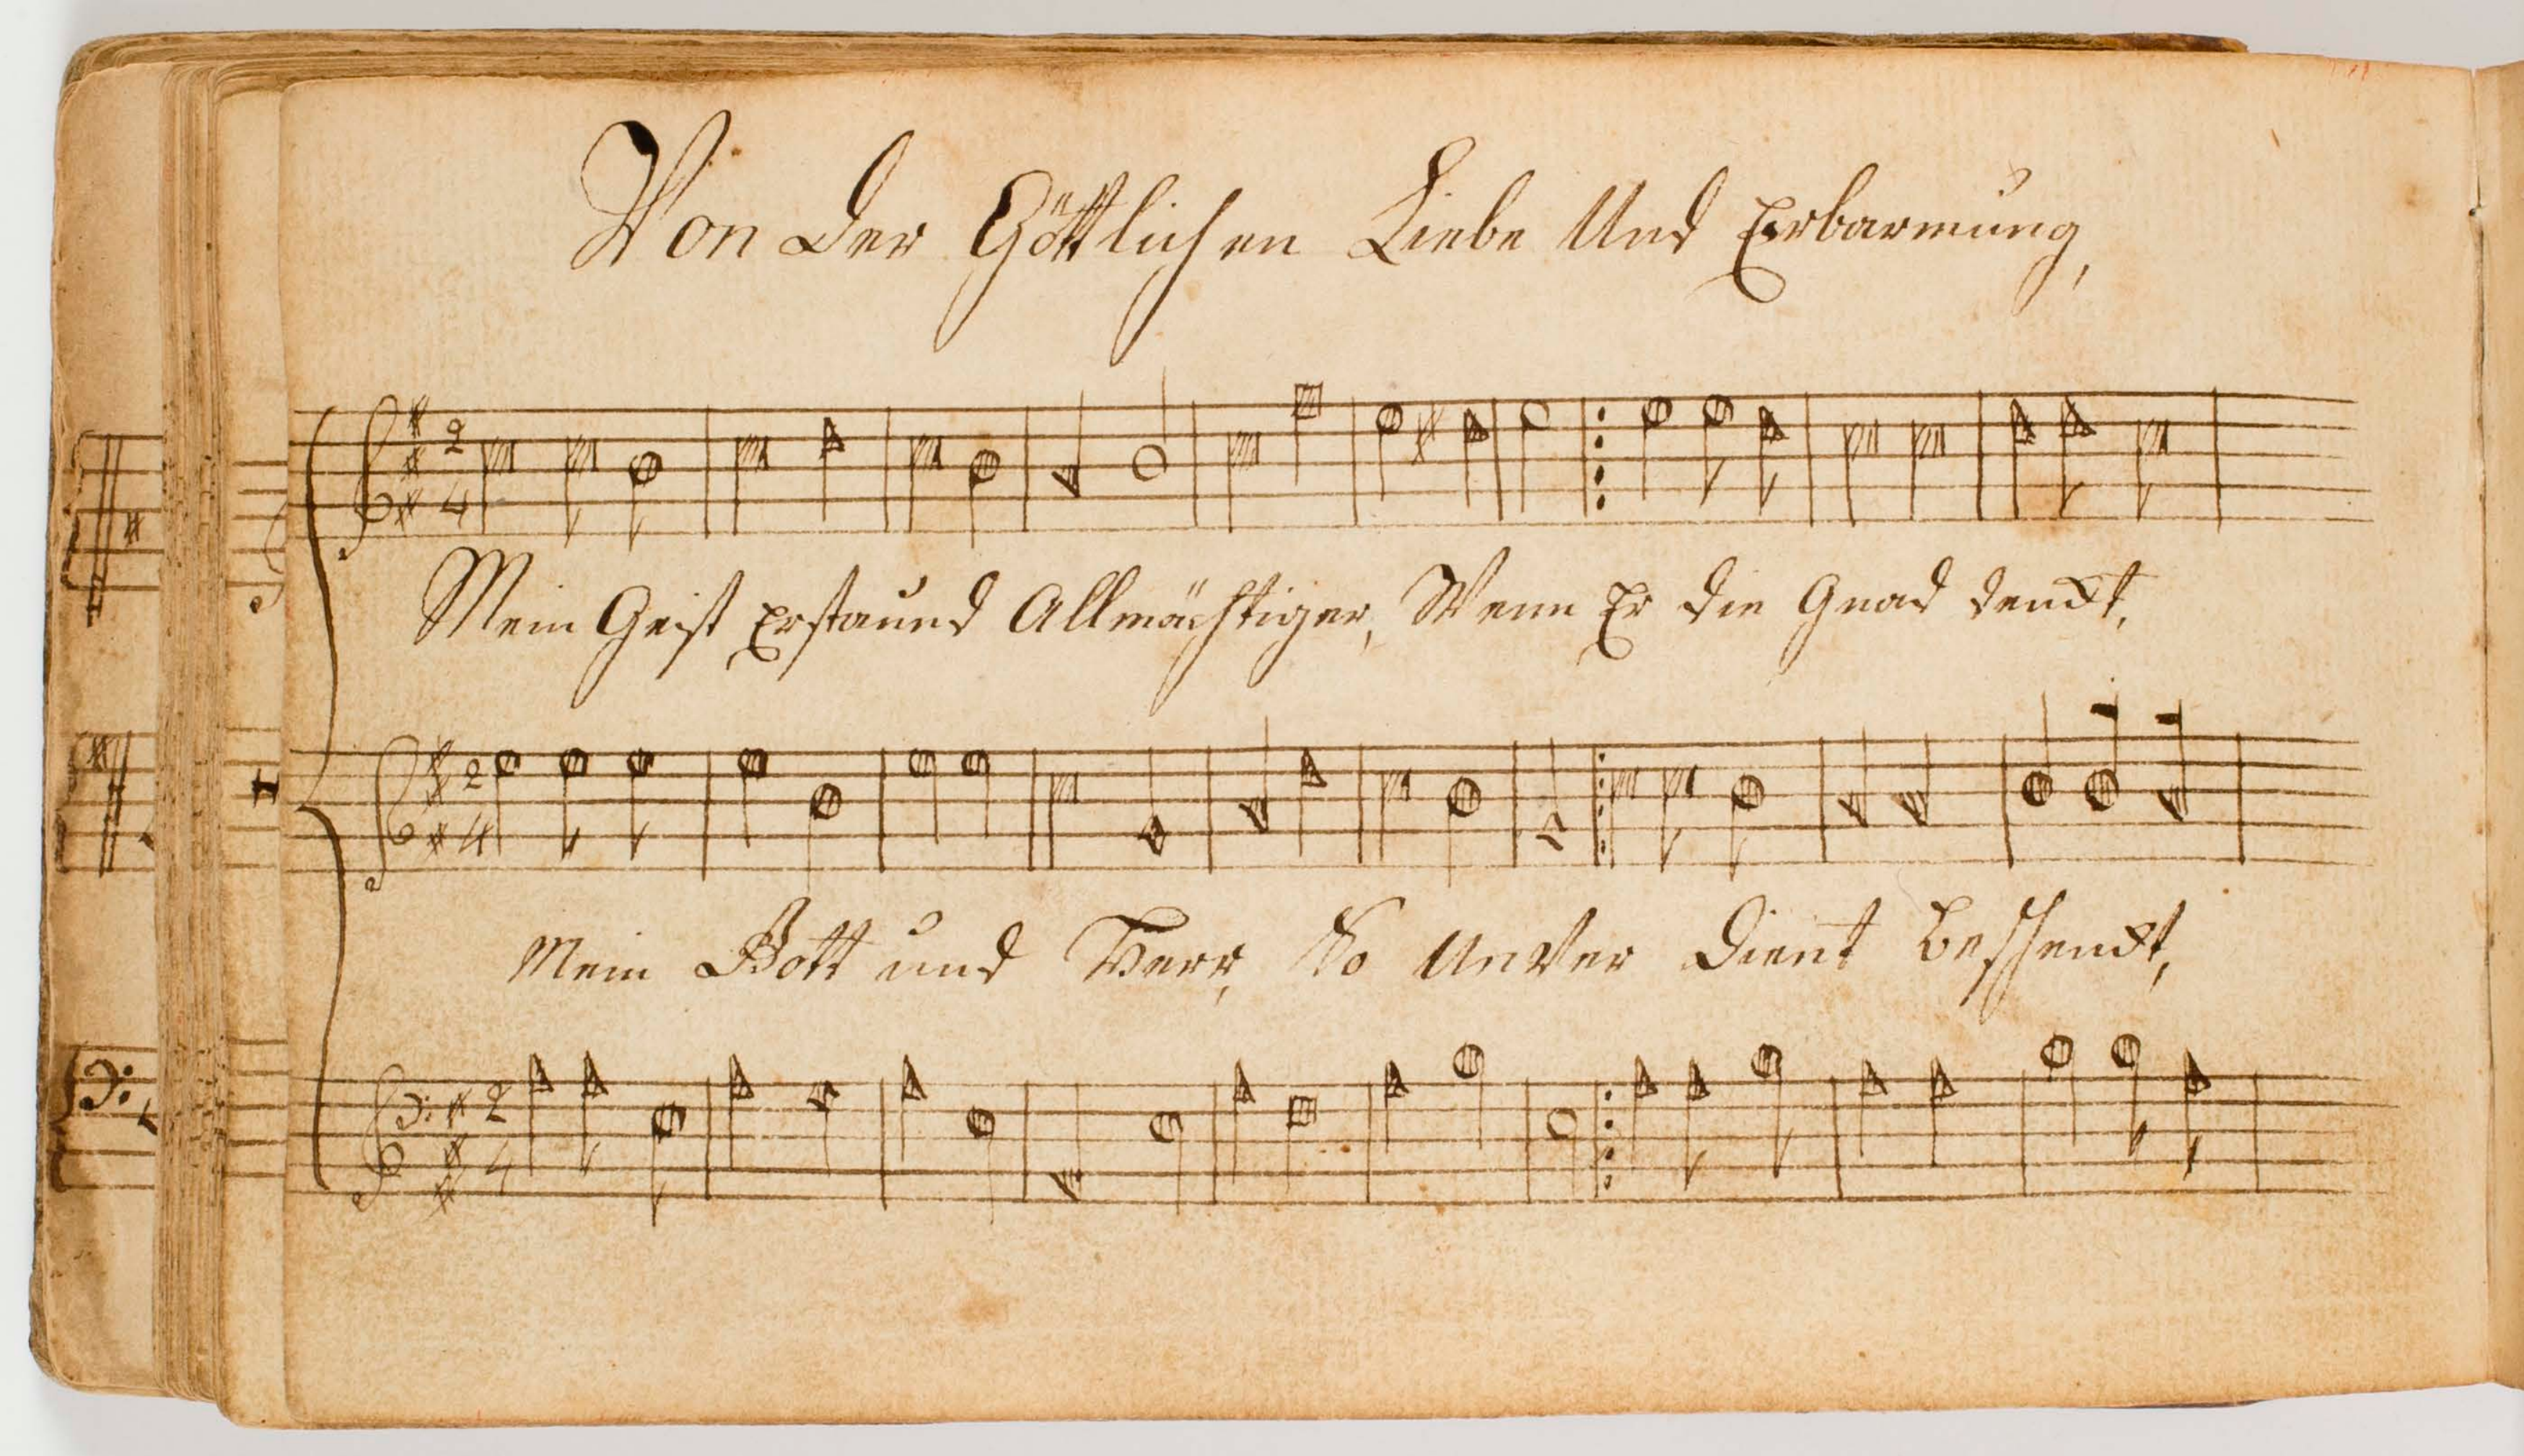 Von der Göttlichen Liebe Und Erbarmung,
2
4
Mein Geist Erstaund Allmächtiger, Wenn Er die Gnad denckt,
2
4
Mein Gott und Herr, So UnVer Dient beschenckt,
2
4